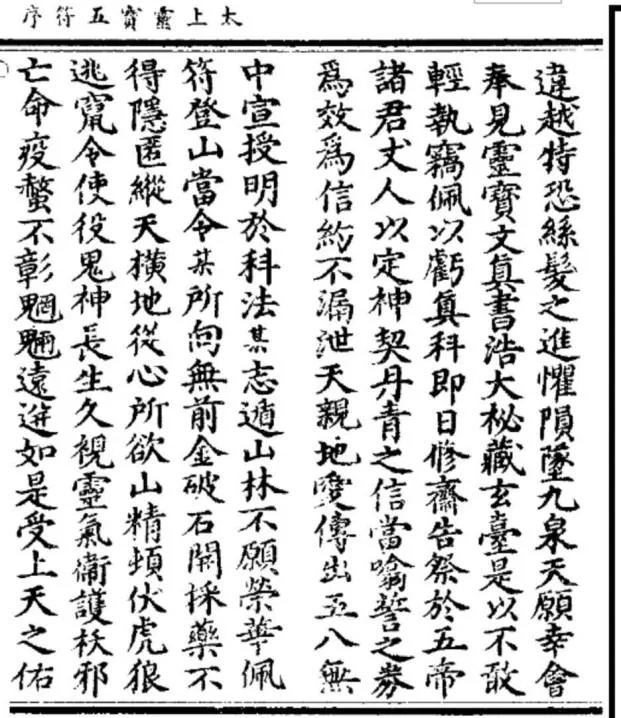 太上靈寳五符序
違越特恐絲髮之進懼隕墜九泉天願幸會
奉見靈寳文真書浩大秘藏玄臺是以不敢
輕執竊佩以虧真科即日修齋告祭於五帝
諸君丈人以定神契丹青之信當噏誓之券
爲效爲信約不漏泄天親地雙傳出五八無
中宣授明於科法某志遁山林不願榮華佩
符登山當令某所向無前金破石開採藥不
得隱匿縱天橫地從心所欲山精頓伏虎狼
逃竄令使役鬼神長生久視靈氣衞護祅邪
亡命疫螫不彰魍魎遠迸如是受上天之佑